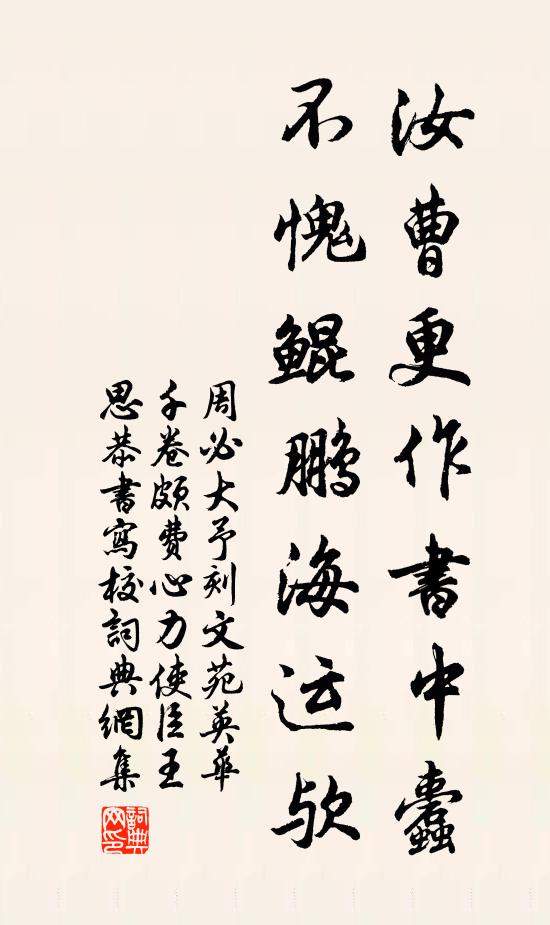 汝曹更作書中蠹
不愧鯤鵬海运欤
周必大予刻文苑英華
千卷頗費心力使臣王
思恭書寫校詞典網集
詞典网印